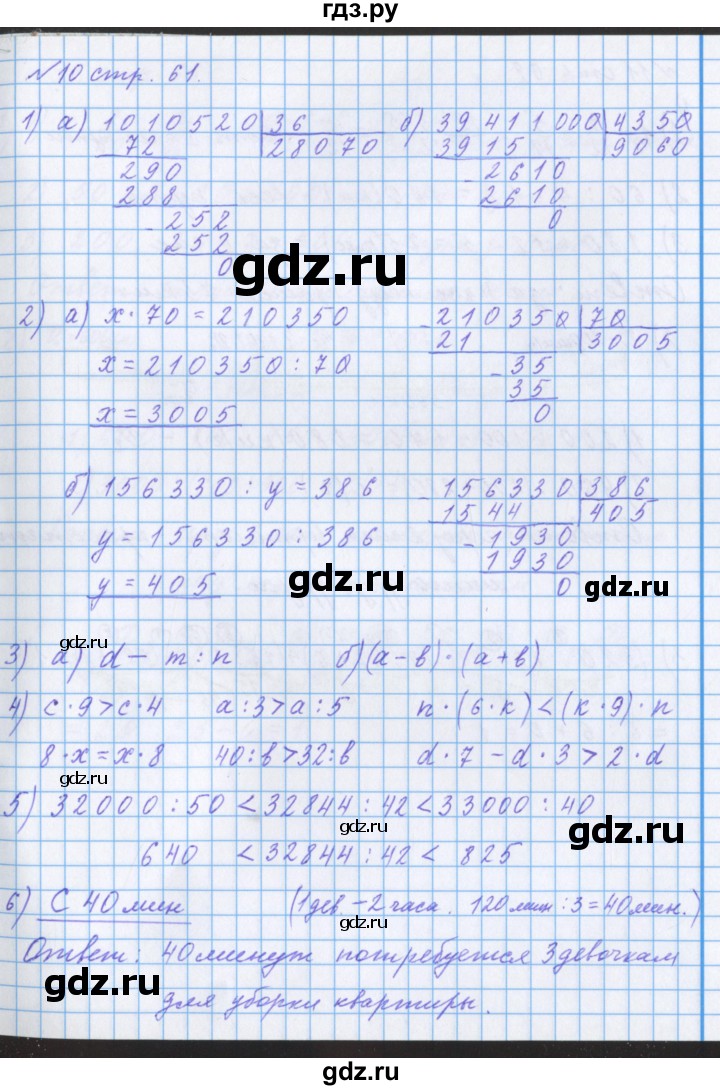 гдз.ру
№10 стр. 61.
1) а) 1010520 | 36
72 | 28070
290
288
252
252
0
б) 39411000 | 4350
3915 | 9060
2610
2610
0
gdz.ru
2) а) x · 70 = 210350
x = 210350 : 70
x = 3005
210350 | 70
21 | 3005
35
35
0
б) 156330 : y = 386
y = 156330 : 386
y = 405
156330 | 386
1544 | 405
1930
1930
0
gdz.ru
gdz.ru
gdz.ru
3) а) d - m : n б) (a - b) · (a + b)
gdz.ru
4) c · 9 > c · 4 a : 3 > a : 5 n · (6 · k) < (k · 9) · n
8 · x = x · 8 40 : b > 32 : b d · 7 - d · 3 > 2 · d
gdz.ru
gdz.ru
5) 32000 : 50 < 32844 : 42 < 33000 : 40
gdz.ru
gdz.ru
640 < 32844 : 42 < 825
6) С 40 мин (1 дев. - 2 часа. 120 мин : 3 = 40 мин.)
gdz.ru
Ответ: 40 минут потребуется 3 девочкам
gdz.ru
для уборки квартиры.
gdz.ru
gdz.ru